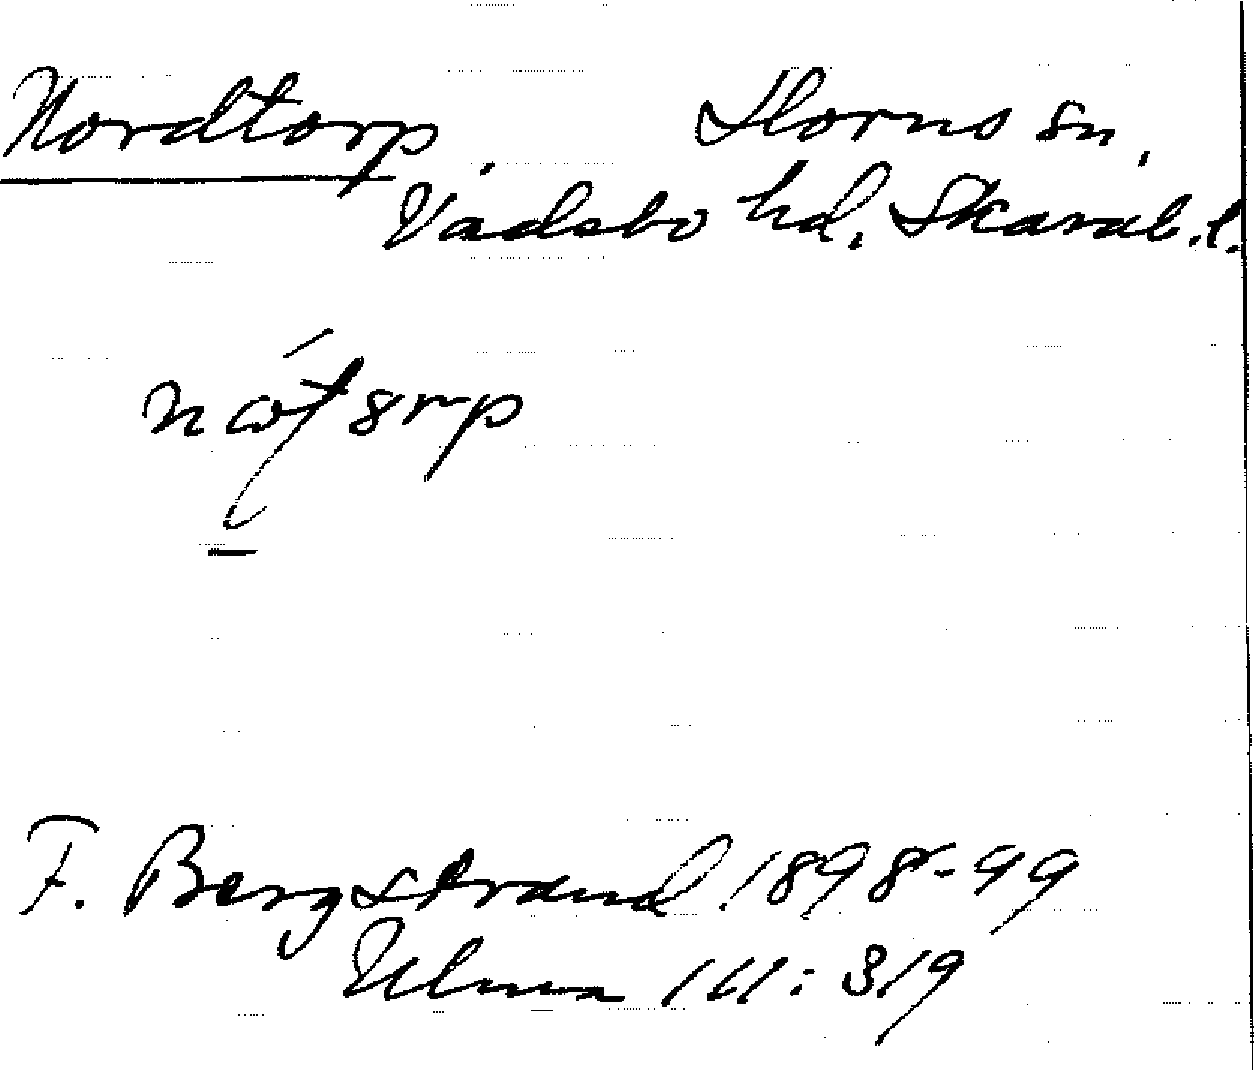 Nordtorp. Horns sn,
Vadsbo hd, Skarab. l.
F. Bergstrand 1898-99
Ulma 111:319